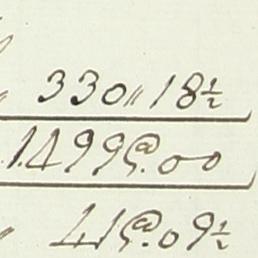 330„18½
1499@.00
„ 41@.09½